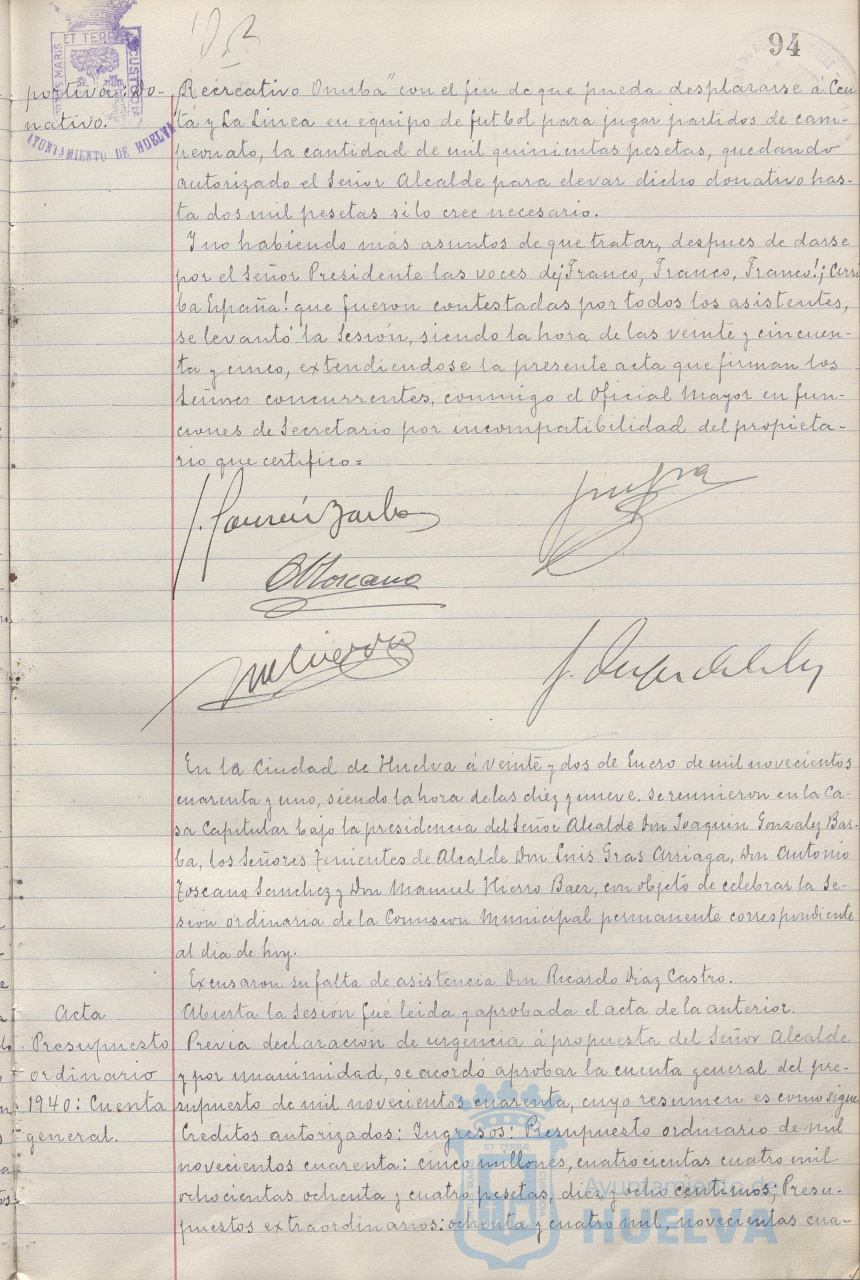 94
portiva: Do-
nativo.
AYUNTAMIENTO DE HUELVA
Recreativo Onuba" con el fin de que pueda desplazarse á Ceu
ta y La Linea su equipo de futbol para jugar partidos de cam-
peonato, la cantidad de mil quinientas pesetas, quedando
autorizado el Señor Alcalde para elevar dicho donativo has-
ta dos mil pesetas si lo cree necesario.
Y no habiendo más asuntos de que tratar, despues de darse
por el Señor Presidente las voces de ¡Franco, Franco, Franco! ¡Arri
ba España! que fueron contestadas por todos los asistentes,
se levantó la Sesión, siendo la hora de las veinte y cincuen-
ta y cinco, extendiendose la presente acta que firman los
Señores concurrentes, conmigo el Oficial Mayor en fun-
ciones de Secretario por incompatibilidad del propieta-
rio que certifico=
En la Ciudad de Huelva á veinte y dos de Enero de mil novecientos
cuarenta y uno, siendo la hora de las diez y nueve, se reunieron en la Ca-
sa Capitular bajo la presidencia del Señor Alcalde Don Joaquin Gonzalez Bar-
ba, los Señores Tenientes de Alcalde Don Luis Gras Arriaga, Don Antonio
Toscano Sanchez y Don Manuel Hierro Baez, con objeto de celebrar la Se-
sión ordinaria de la Comision Municipal permanente correspondiente
al dia de hoy.
Excusaron su falta de asistencia Don Ricardo Diaz Castro.
Acta
Abierta la Sesión fué leida y aprobada el acta de la anterior.
Presupuesto
ordinario
1940: Cuenta
general.
Previa declaración de urgencia á propuesta del Señor Alcalde
y por unanimidad, se acordó aprobar la cuenta general del pre-
supuesto de mil novecientos cuarenta, cuyo resumen es como sigue
Creditos autorizados: Ingresos: Presupuesto ordinario de mil
novecientos cuarenta: cinco millones, cuatrocientas cuatro mil
ochocientas ochenta y cuatro pesetas, diez y ocho centimos; Presu-
puestos extraordinarios: ochenta y cuatro mil, novecientas cua-
Ayuntamiento de
HUELVA